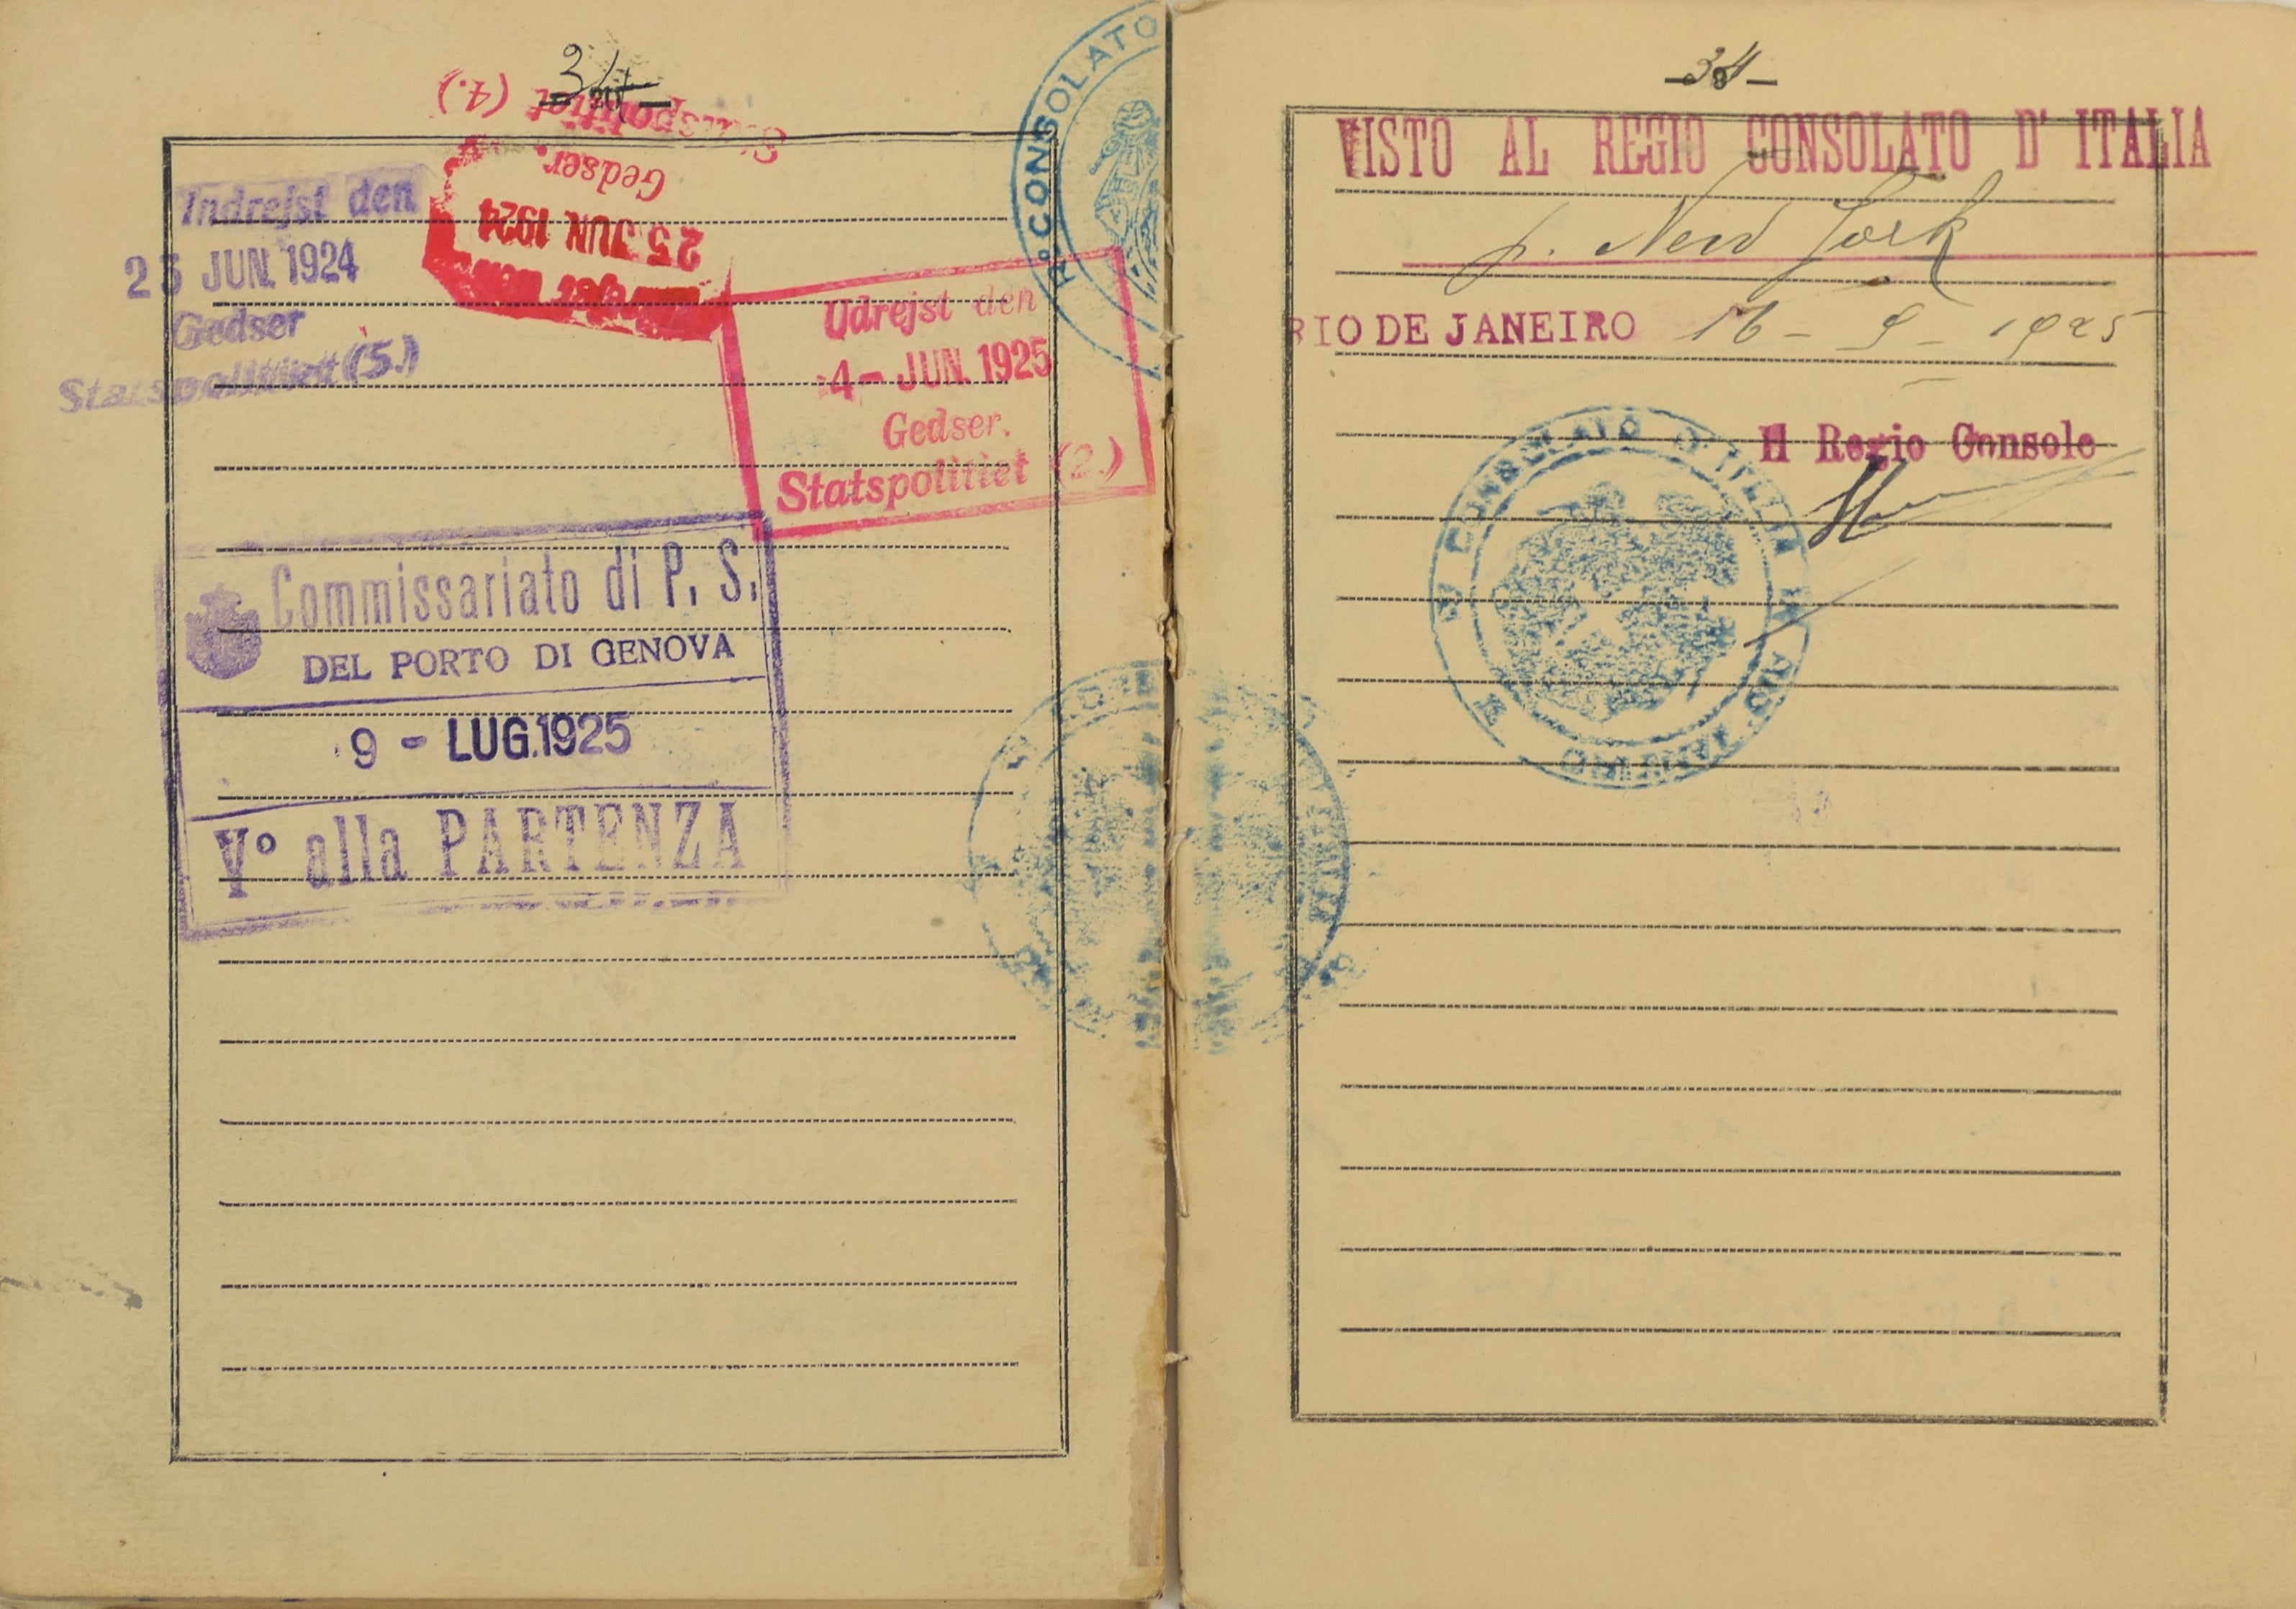 34
Statspolitiet (4.)
Gedser.
25 JUN 1924
Indrejst den
25 JUN. 1924
Gedser
Statspolitiet (5.)
Rº CONSOLATO
Udrejst den
4 - JUN. 1925
Gedser.
Statspolitiet (2.)
Commissariato di P. S.
DEL PORTO DI GENOVA
9 - LUG. 1925
Vº alla PARTENZA
34
VISTO AL REGIO CONSOLATO D' ITALIA
p. New York
RIO DE JANEIRO 16 - 9 - 1925
Il Regio Console
CONSOLATO D'ITALIA IN RIO JANEIRO